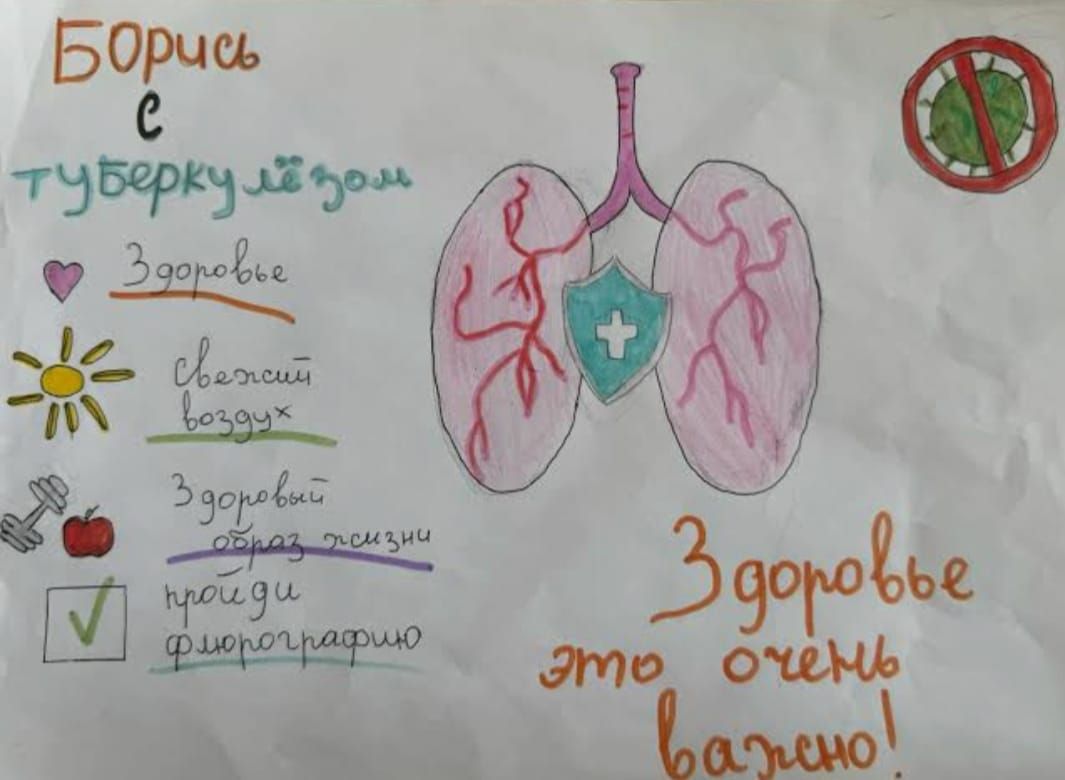 Борись
с
туберкулёзом
Здоровье
свежий
воздух
Здоровый
образ жизни
пройди
флюрографию
Здоровье
это очень
важно!